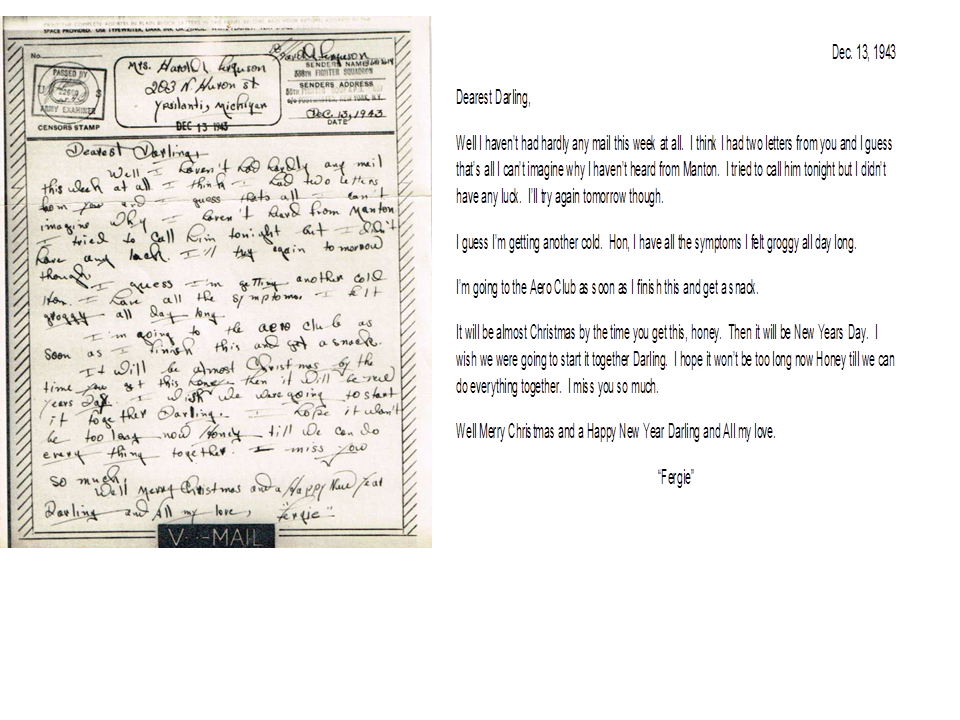 SPACE PROVIDED. USE TYPEWRITER, DARK INK OR
No.
PASSED BY
U S
ARMY EXAMINER
CENSORS STAMP
Mrs. Harold Ferguson
203 N. Huron st
Ypsilanti, Michigan
DEC 13 1943
Harold Ferguson
SENDERS NAME
FIGHTER SQUADRON
SENDERS ADDRESS
NEW YORK, N.Y.
Dec. 13, 1943
DATE
Dearest Darling,
Well I haven't had hardly any mail
this week at all I think I had two letters
from you and I guess thats all I can't
imagine why I haven't heard from Manton
I tried to call him tonight but I didn't
have any luck. I'll try again tomorrow
though.
I guess I'm getting another cold
Hon. I have all the symptoms I felt
groggy all day long.
I'm going to the aero club as
soon as I finish this and get a snack.
It will be almost Christmas by the
time you get this honey then it will be new
years Day. I wish we were going to start
it together Darling. I hope it won't
be too long now Honey till we can do
every thing together. I miss you
so much.
Well Merry Christmas and a Happy New Year
Darling and All my love,
"Fergie"
V···-MAIL
Dec. 13, 1943
Dearest Darling,
Well I haven't had hardly any mail this week at all. I think I had two letters from you and I guess
that's all I can't imagine why I haven't heard from Manton. I tried to call him tonight but I didn't
have any luck. I'll try again tomorrow though.
I guess I'm getting another cold. Hon, I have all the symptoms I felt groggy all day long.
I'm going to the Aero Club as soon as I finish this and get a snack.
It will be almost Christmas by the time you get this, honey. Then it will be New Years Day. I
wish we were going to start it together Darling. I hope it won't be too long now Honey till we can
do everything together. I miss you so much.
Well Merry Christmas and a Happy New Year Darling and All my love.
"Fergie"